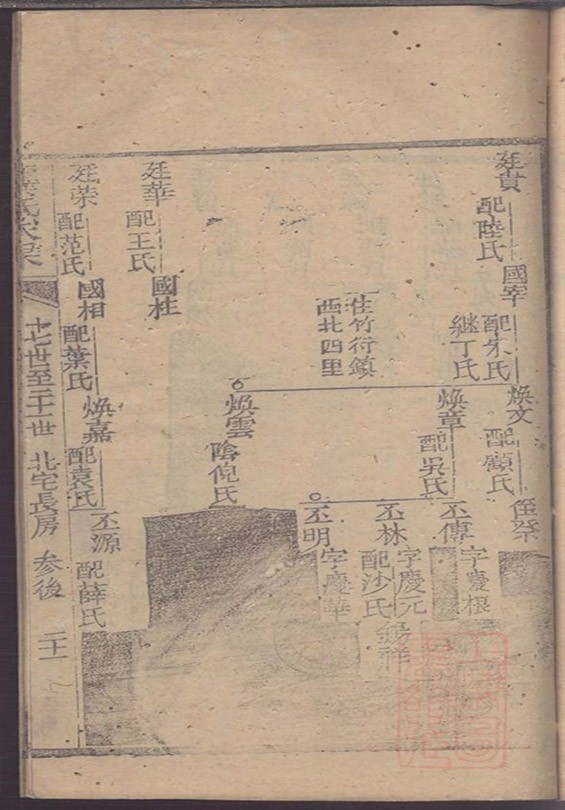 廷貴
配陸氏
國宰
配朱氏
継丁氏
煥文
配顧氏
住竹行鎮
西北四里
煥章
配吳氏
丕傳
字慶根
丕林
字慶元
配沙氏
丕明
字慶華
煥雲
陰倪氏
廷華
配王氏
國柱
廷荣
配范氏
國相
配葉氏
煥嘉
配袁氏
丕源
配薛氏
十七世至二十一世 北宅長房 参後 二十一